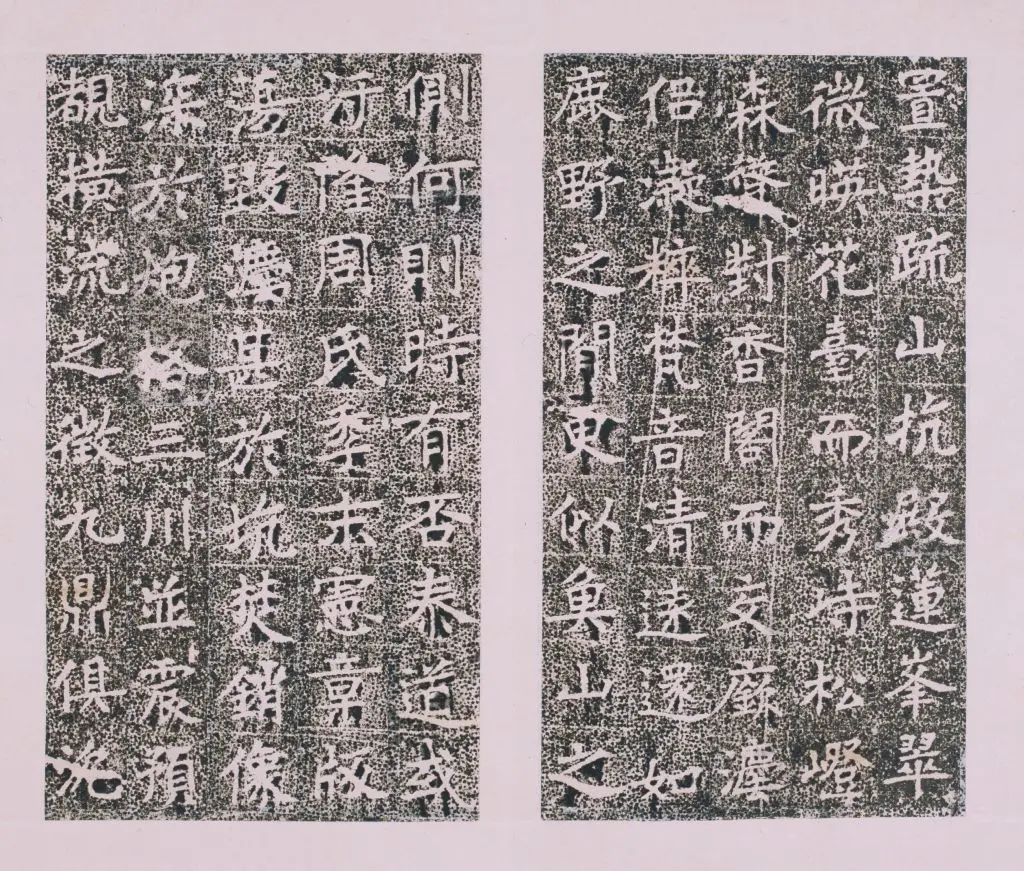 置槷疏山抗殿蓮峯翠
微暎花臺而秀峙松嶝
森聳對香閣而交靡塵
侶凝粹梵音清遠還如
鹿野之間更似魚山之
側何則時有否泰道或
汙隆周氏季末憲章版
蕩毀灋甚於坑焚銷像
深於炮格三川並震預
覩橫流之徵九鼎俱